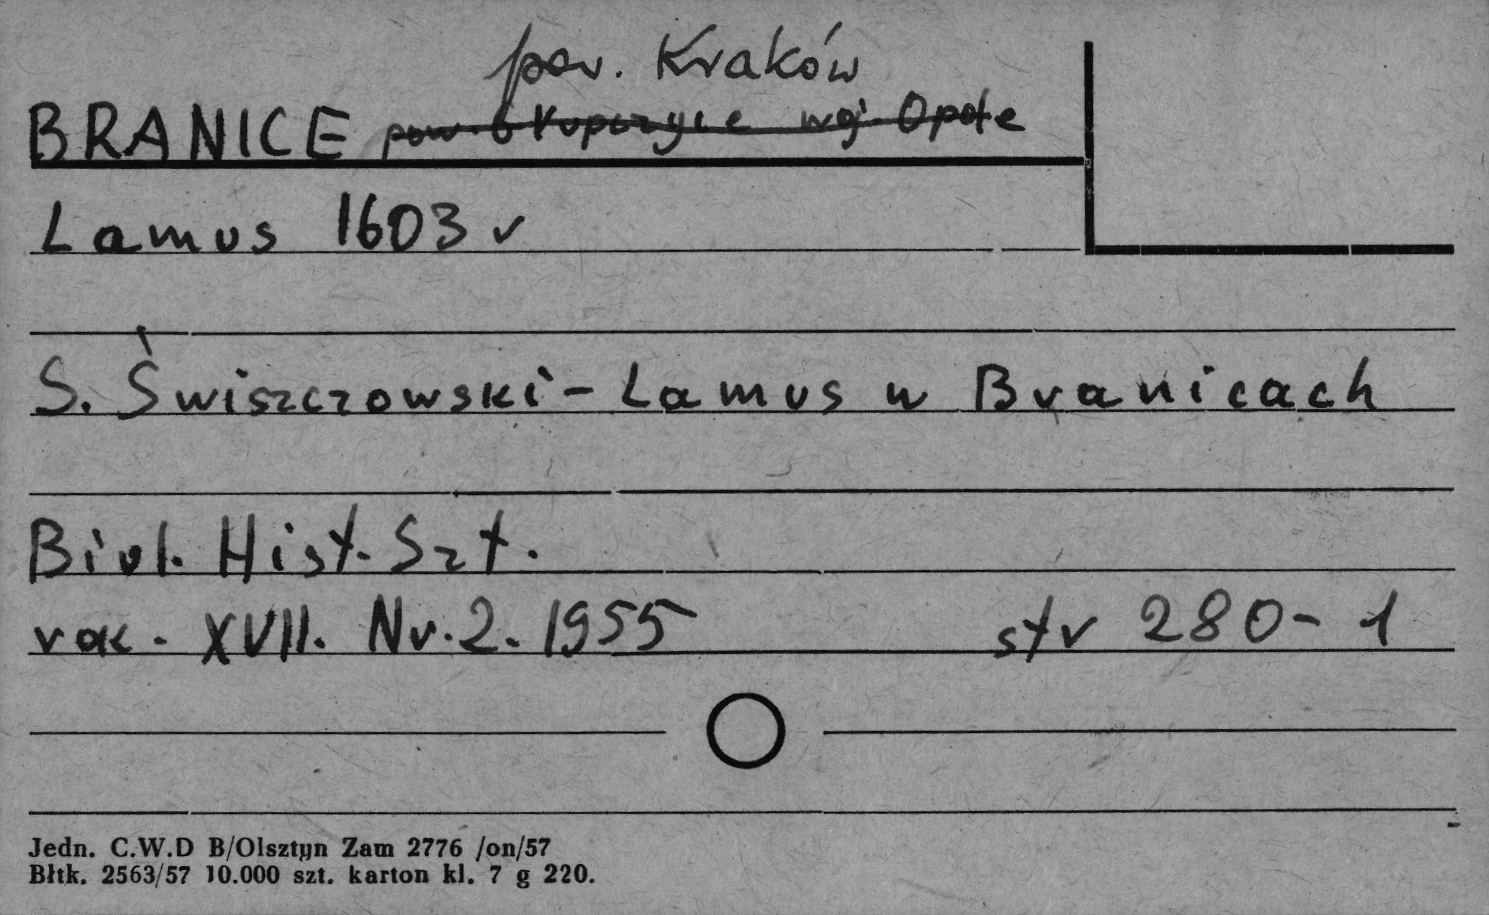 pow. Kraków
BRANICE pow. Głupczyce woj. Opole
Lamus 1603 r
S. Świszczowski - Lamus w Branicach
Biul. Hist. Szt.
rok. XVII. Nr. 2. 1955 str 280-1
Jedn. C.W.D B/Olsztyn Zam 2776 /on/57
Błtk. 2563/57 10.000 szt. karton kl. 7 g 220.